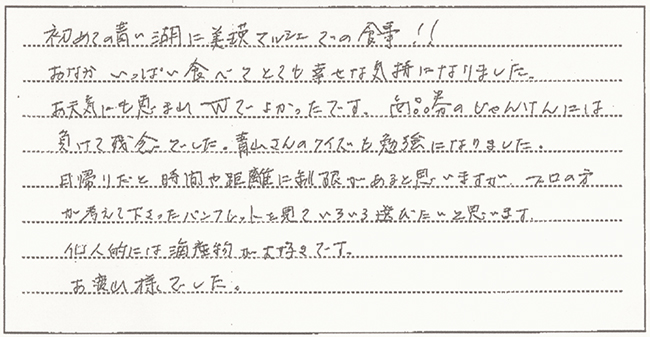 初めての青い湖に美瑛マルシェでの食事!!
おなかいっぱい食べてとても幸せな気持になりました。
お天気にも恵まれてよかったです。商品券のじゃんけんには
負けて残念でした。青山さんのクイズも勉強になりました。
日帰りだと時間や距離に制限があると思いますが、プロの方
が考えて下さったパンフレットを見ていろいろ選びたいと思います。
個人的には海産物が大好きです。
お疲れ様でした。